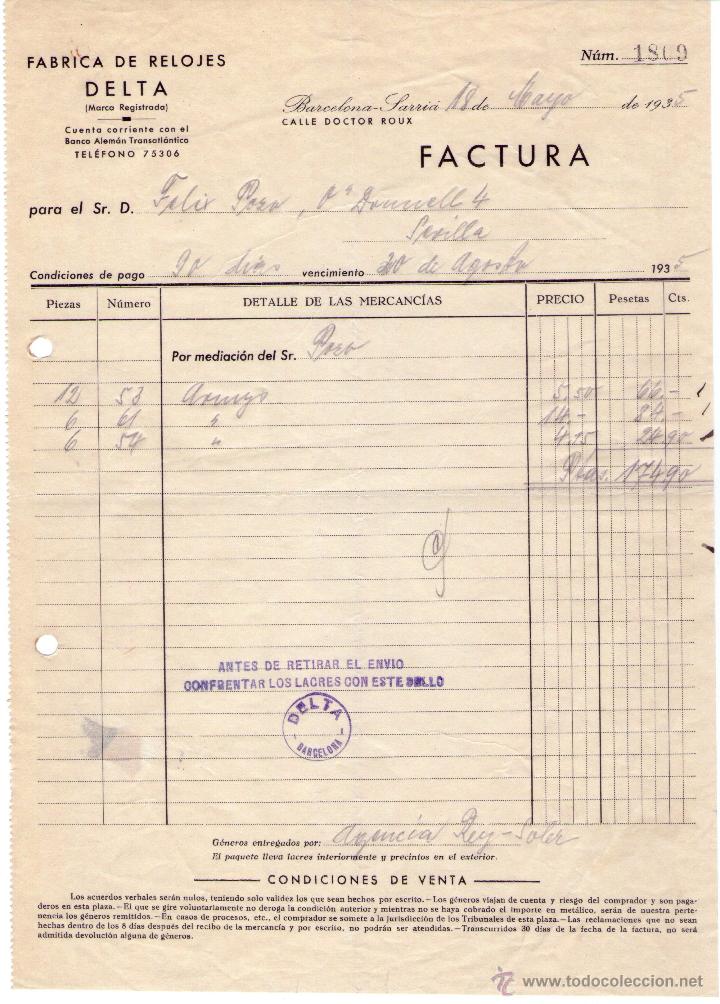 FABRICA DE RELOJES
DELTA
(Marca Registrada)
Cuenta corriente con el
Banco Alemán Transatlántico
TELÉFONO 75306
Núm. 1809
Barcelona-Sarriá 18 de Mayo de 1935
CALLE DOCTOR ROUX
FACTURA
para el Sr. D. Felix Pozo, O'Donnell 4
Sevilla
Condiciones de pago 90 dias vencimiento 20 de Agosto 1935
Piezas Número DETALLE DE LAS MERCANCÍAS PRECIO Pesetas Cts.
Por mediación del Sr. Pozo
12 53 5,50 66.-
6 61 " 14.- 84.-
6 54 " 4,15 24,90
Ptas. 174,90
ANTES DE RETIRAR EL ENVIO
CONFRENTAR LOS LACRES CON ESTE SELLO
DELTA
- BARCELONA -
Géneros entregados por: Agencia Rey-Soler
El paquete lleva lacres interiormente y precintos en el exterior.
CONDICIONES DE VENTA
Los acuerdos verbales serán nulos, teniendo solo validez los que sean hechos por escrito.—Los géneros viajan de cuenta y riesgo del comprador y son paga-
deros en esta plaza.—El que se gire voluntariamente no deroga la condición anterior y mientras no se haya cobrado el importe en metálico, serán de nuestra perte-
nencia los géneros remitidos.—En casos de procesos, etc., el comprador se somete a la jurisdicción de los Tribunales de esta plaza.—Las reclamaciones que no sean
hechas dentro de los 8 días después del recibo de la mercancía y por escrito, no podrán ser atendidas.—Transcurridos 30 días de la fecha de la factura, no será
admitida devolución alguna de géneros.
www.todocoleccion.net